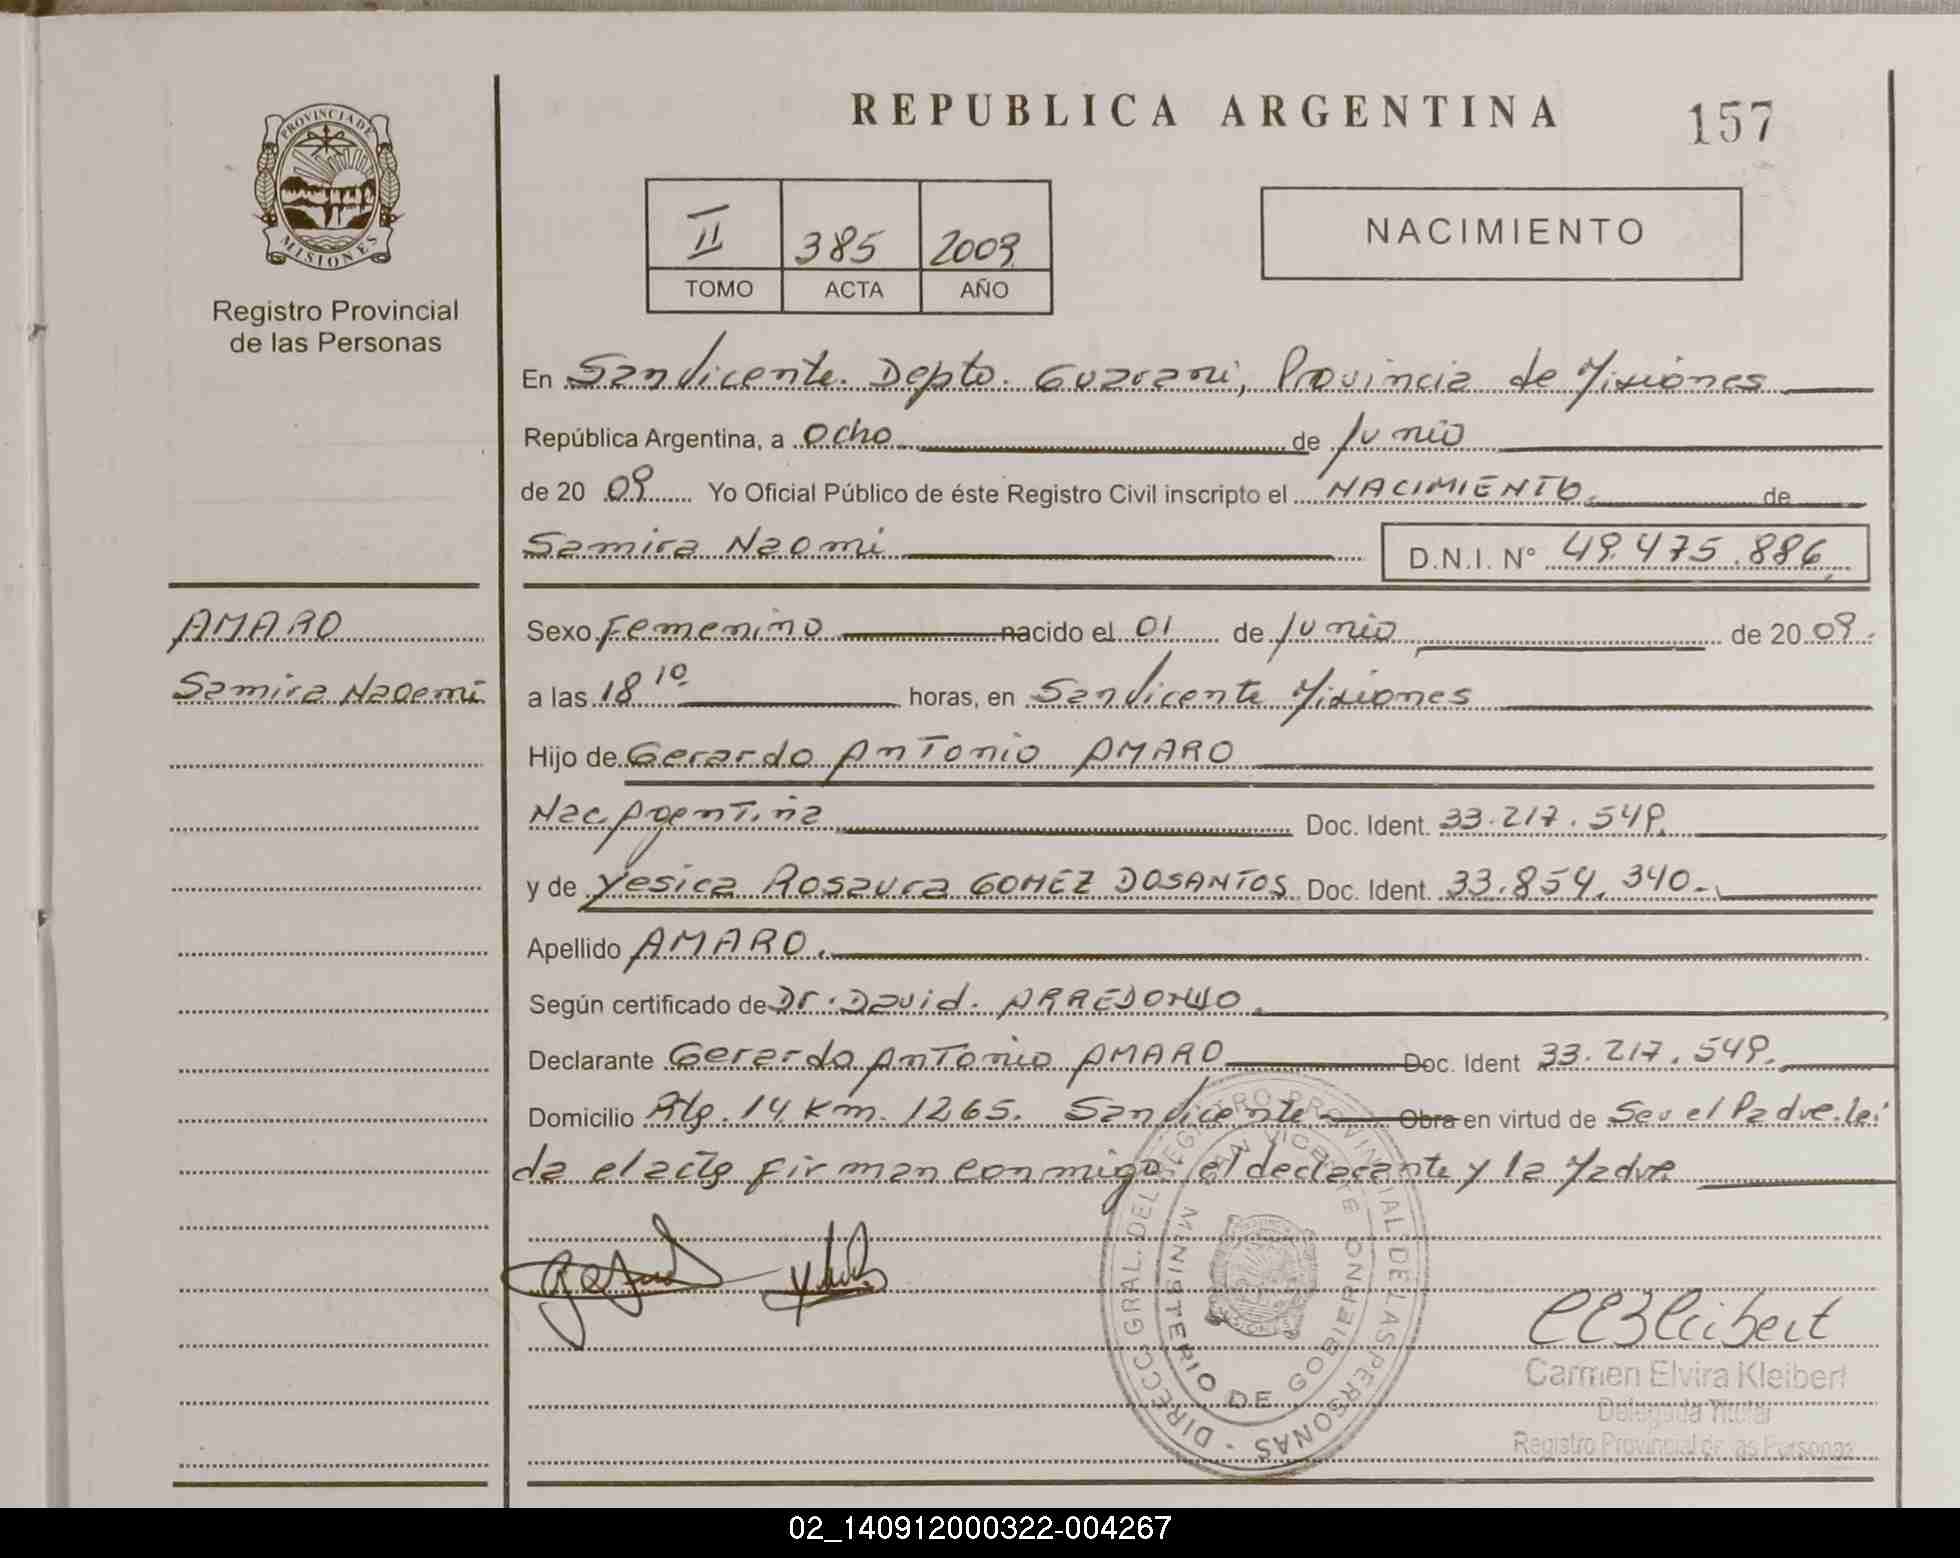 REPUBLICA ARGENTINA
157
PROVINCIA DE MISIONES
Registro Provincial
de las Personas
II 385 2009
TOMO ACTA AÑO
NACIMIENTO
En San Vicente. Depto. Guarani, Provincia de Misiones
República Argentina, a Ocho de Junio
de 20 09 Yo Oficial Público de éste Registro Civil inscripto el NACIMIENTO. de
Samira Naomi D.N.I. N° 49.475.886
AMARO
Samira Naoemi
Sexo Femenino nacido el 01 de Junio de 20 09.
a las 18 10 horas, en San Vicente Misiones
Hijo de Gerardo Antonio AMARO
Nac. Argentina Doc. Ident. 33.217.549.
y de Yesica Rosaura GOMEZ DOSANTOS Doc. Ident. 33.854.340.
Apellido AMARO.
Según certificado de Dr. David. ARREDONDO.
Declarante Gerardo Antonio AMARO Doc. Ident 33.217.549.
Domicilio Rta. 14. Km. 1265. San Vicente Obra en virtud de Ser el Padre. lei
da el acta firman conmigo, el declarante y la Madre
DIRECC. GRAL. DEL REGISTRO PROVINCIAL DE LAS PERSONAS
SAN VICENTE
MINISTERIO DE GOBIERNO
CEKleibert
Carmen Elvira Kleibert
Delegada Titular
Registro Provincial de las Personas
02_140912000322-004267